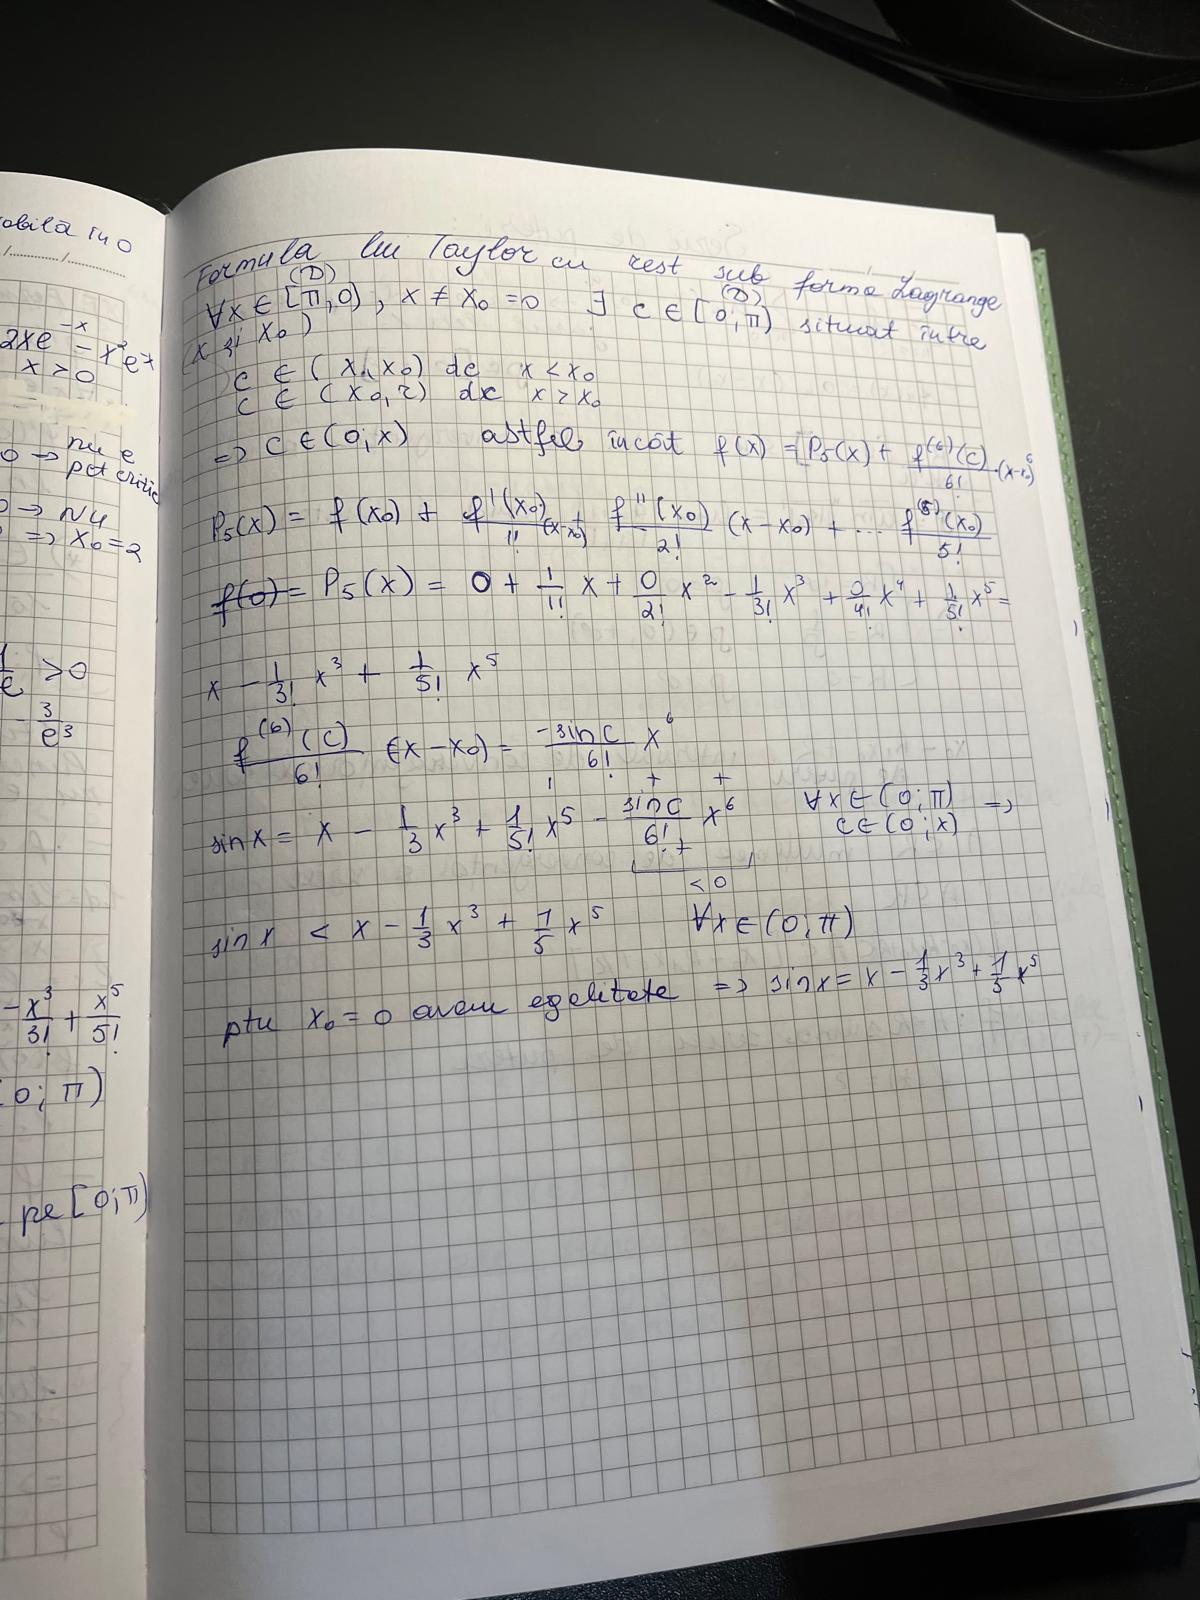 obilă în 0
2xe^-x - x²e^-x
x > 0
nu e
0 → pct critic
0 → NU
=> x₀ = 2
1/e > 0
- 3/e³
- x³/3! + x⁵/5!
0; π)
pe [0; π)
Formula lui Taylor cu rest sub forma Lagrange
(D) (D)
∀x ∈ [π, 0), x ≠ x₀ = 0 ∃ c ∈ [0; π) situat între
(x și x₀)
c ∈ (x, x₀) dc x < x₀
c ∈ (x₀, x) dc x > x₀
=> c ∈ (0, x) astfel încât f(x) = P₅(x) + f⁽⁶⁾(c)/6! · (x-x₀)⁶
P₅(x) = f(x₀) + f'(x₀)/1! (x-x₀) + f''(x₀)/2! (x-x₀) + ... f⁽⁵⁾(x₀)/5!
f(0) = P₅(x) = 0 + 1/1! x + 0/2! x² - 1/3! x³ + 0/4! x⁴ + 1/5! x⁵ =
x - 1/3! x³ + 1/5! x⁵
f⁽⁶⁾(c)/6! (x-x₀) = -sin c/6! x⁶
+ +
sin x = x - 1/3 x³ + 1/5! x⁵ - sin c/6! x⁶ ∀x ∈ (0; π) =>
+ c ∈ (0; x)
< 0
sin x < x - 1/3 x³ + 1/5 x⁵ ∀x ∈ (0; π)
ptu x₀ = 0 avem egalitate => sin x = x - 1/3 x³ + 1/5 x⁵